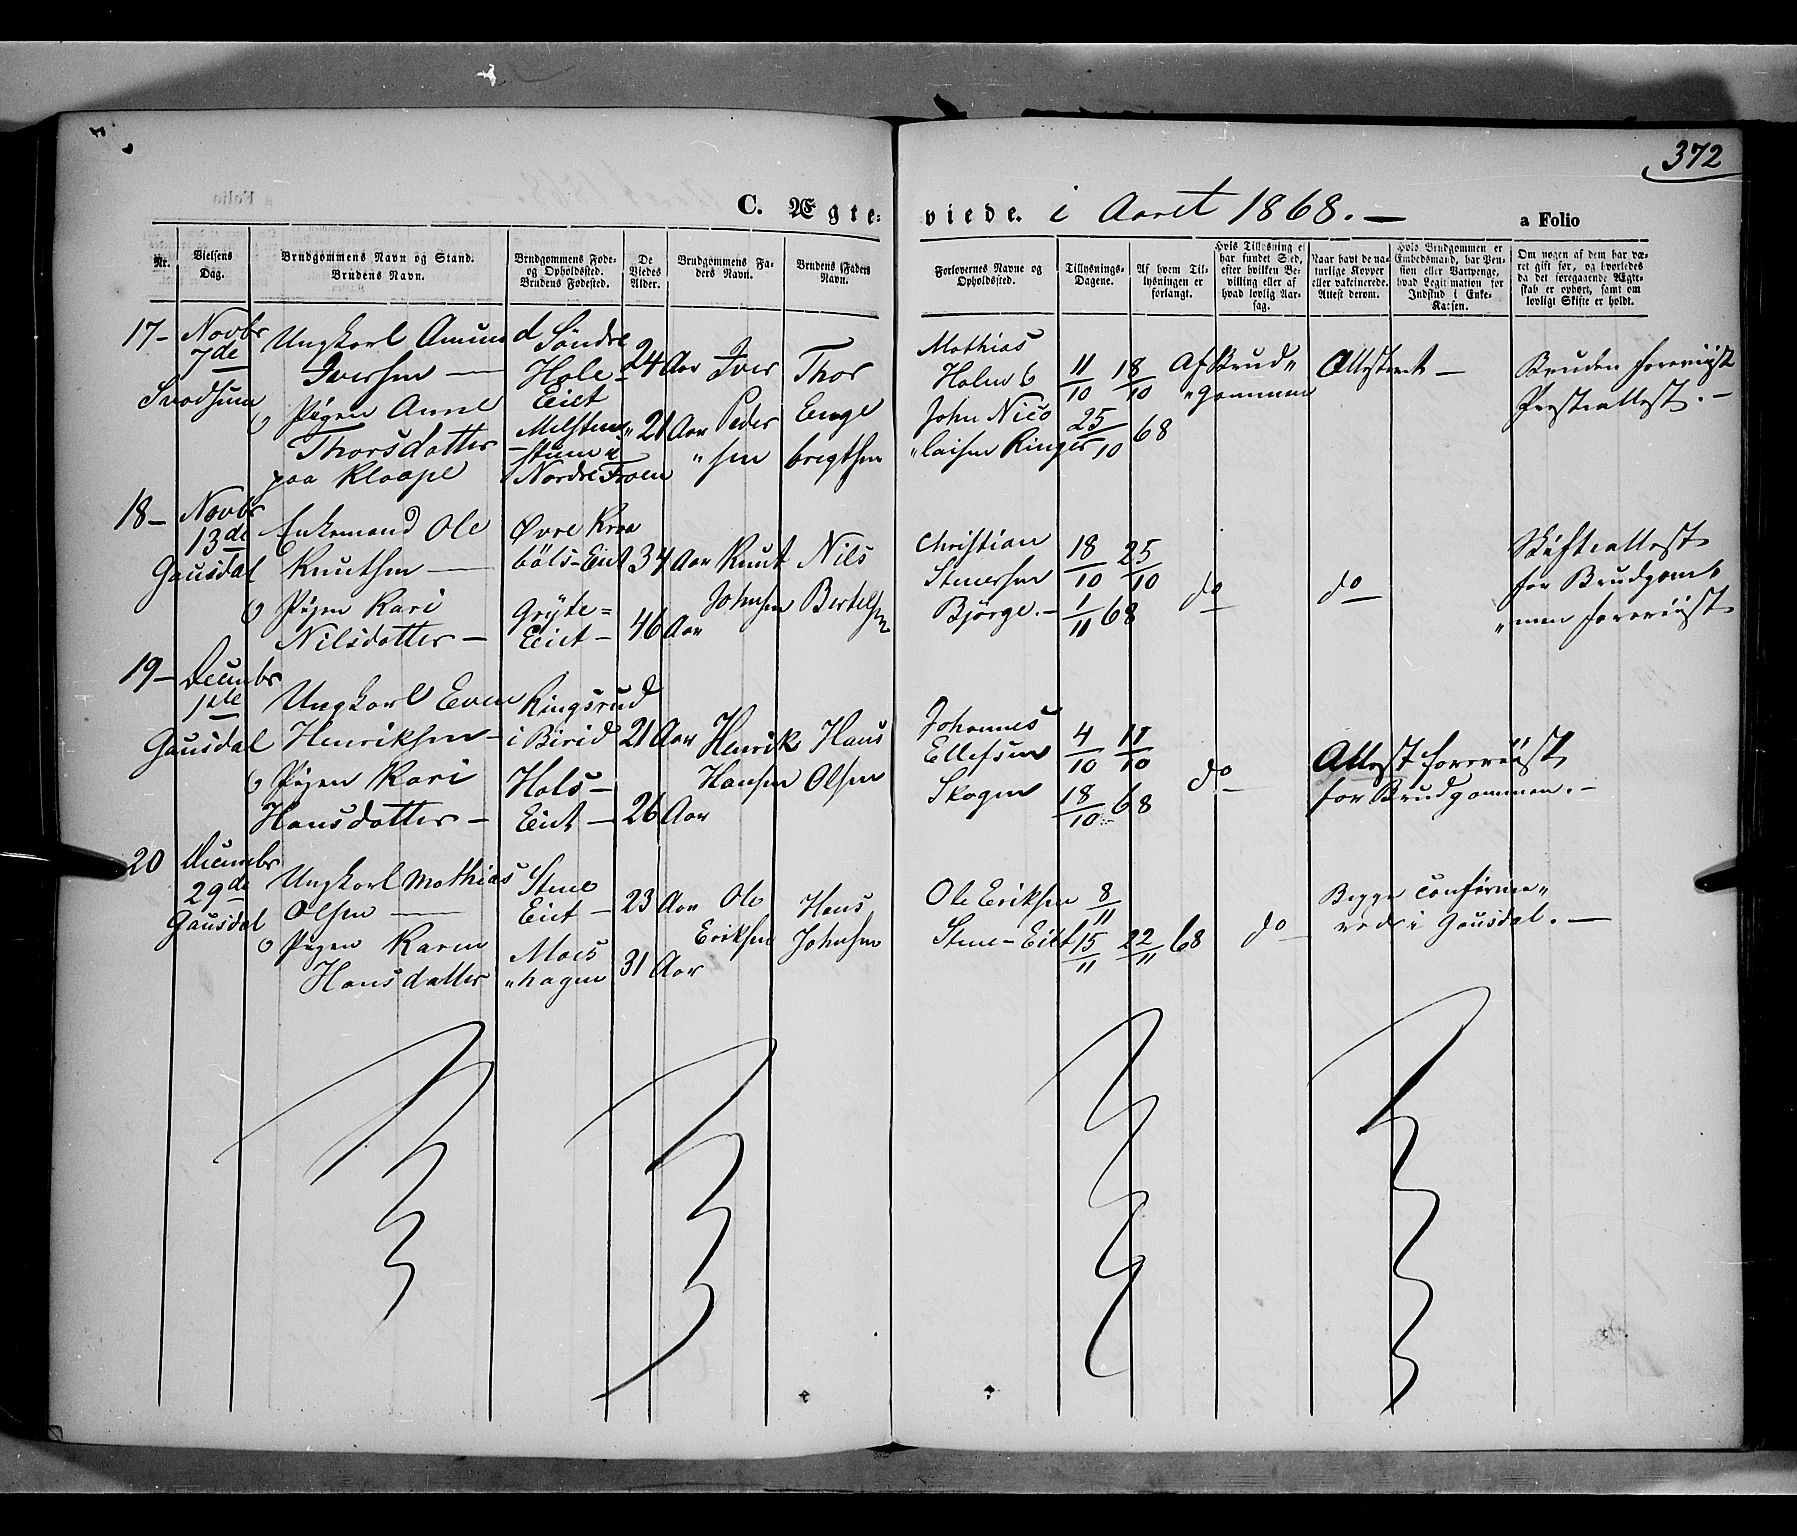 372
C. Ægte- viede. i Aaret 1868. —
a Folio
Nr.
Vielsens Dag.
Brudgommens Navn og Stand. Brudens Navn.
Brudgommens Føde- og Opholdssted. Brudens Fødested.
De Viedes Alder.
Brudgommens Faders Navn.
Brudens Faders Navn.
Forlovernes Navne og Opholdssted.
Tillysnings-Dagene.
Af hvem Tillysningen er forlangt.
Hvis Tillysning ei har fundet Sted, efter hvilken Bevilling eller af hvad lovlig Aarsag.
Naar havt de naturlige Kopper eller vakcinerede. Attest derom.
Hvis Brudgommen er Embedsmand, har Pension eller Vartpenge, hvad Legitimation for Indskud i Enke-Kassen.
Om nogen af dem har været gift før, og hvorledes da det foregaaende Ægteskab er ophørt, samt om lovligt Skifte er holdt.
17 —
Novbr
7de
Svadsum
Ungkarl Amund
Iversen —
Pigen Anne
Thorsdatter
paa Klaape
Søndre
Hole
Eiet
Nordre Froen
24 Aar
21 Aar
Iver
Peder
„sen
Thor
Enge
bregtsen
Mathias
Holm
John Nico
„laisen Ringer
11/10 18/10
25/10 68
Af Brud„
„gommen
Attesteret —
Bruden foreviist
Presteattest. —
18 —
Novbr
13de
Gausdal
Enkemand Ole
Knutsen —
Pigen Kari
Nilsdatter —
Øvre Kraa
böls-Eiet
Gryte=
Eiet —
34 Aar
46 Aar
Knut
Johnsen
Nils
Bertelsen
Christian
Steuersen
Bjørge. —
18/10 25/10
1/11 68
do
do
Skifteattest
for Brudgom„
„men foreviist
19 —
Decembr
1ste
Gausdal
Ungkarl Even
Henriksen —
Pigen Kari
Hansdatter —
Ringsrud
i Birid
Hols —
Eiet —
21 Aar
26 Aar
Henrik
Hansen
Hans
Olsen
Johannes
Ellefsen
Skogen
4/10 11/10
18/10 68
do
Attest foreviist
for Brudgommen. —
20
Decembr
29de
Gausdal
Ungkarl Mathias
Olsen —
Pigen Karen
Hansdatter
Stene
Eiet —
Moes
„hagen
23 Aar
31 Aar
Ole
Eriksen
Hans
Johnsen
Ole Eriksen
Stene-Eiet
8/11
15/11 22/11 68
do
Begge confirme„
rede i Gausdal. —